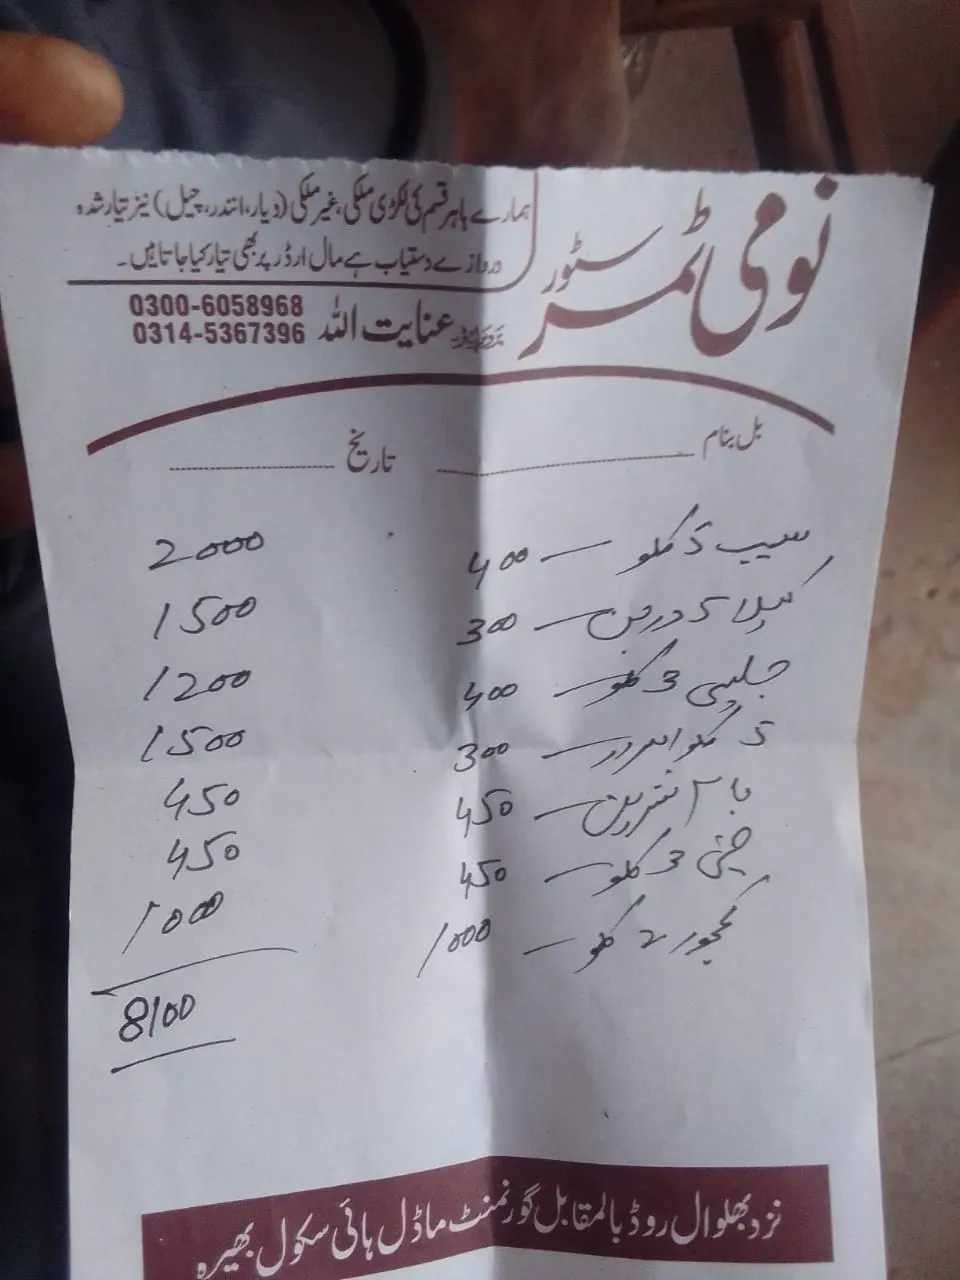 نومی ٹمبر سٹور
ہمارے ہاہر قسم کی لکڑی ملکی، غیر ملکی (دیار، اندر، چیل) نیز تیار شدہ
دروازے دستیاب ہے مال ارڈر پر بھی تیار کیا جاتا ہیں۔
عنایت اللہ
0300-6058968
0314-5367396
بل بنام تاریخ
سیب 5 کلو — 400 2000
کیلا 5 درجن — 300 1500
جلیبی 3 کلو — 400 1200
5 کلو امرود — 300 1500
450 450
3 کلو — 450 450
کھجور 2 کلو — 1000 1000
8100
نزد بھلوال روڈ بالمقابل گورنمنٹ ماڈل ہائی سکول بھیرہ